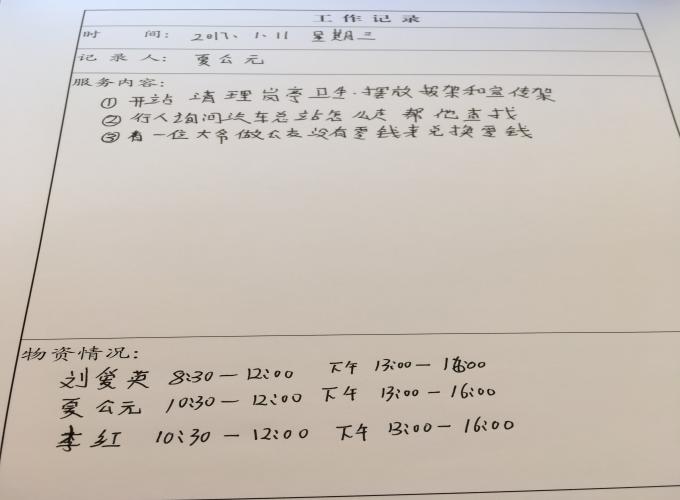 工作记录
时 间: 2017. 1. 11 星期三
记录人: 夏公元
服务内容:
① 开站 清理岗亭卫生.摆放报架和宣传架
② 行人询问汽车总站怎么走 帮他查找
③ 有一位大爷做公交没有零钱来兑换零钱
物资情况:
刘爱英 8:30-12:00 下午 13:00-16:00
夏公元 10:30-12:00 下午 13:00-16:00
李红 10:30-12:00 下午 13:00-16:00